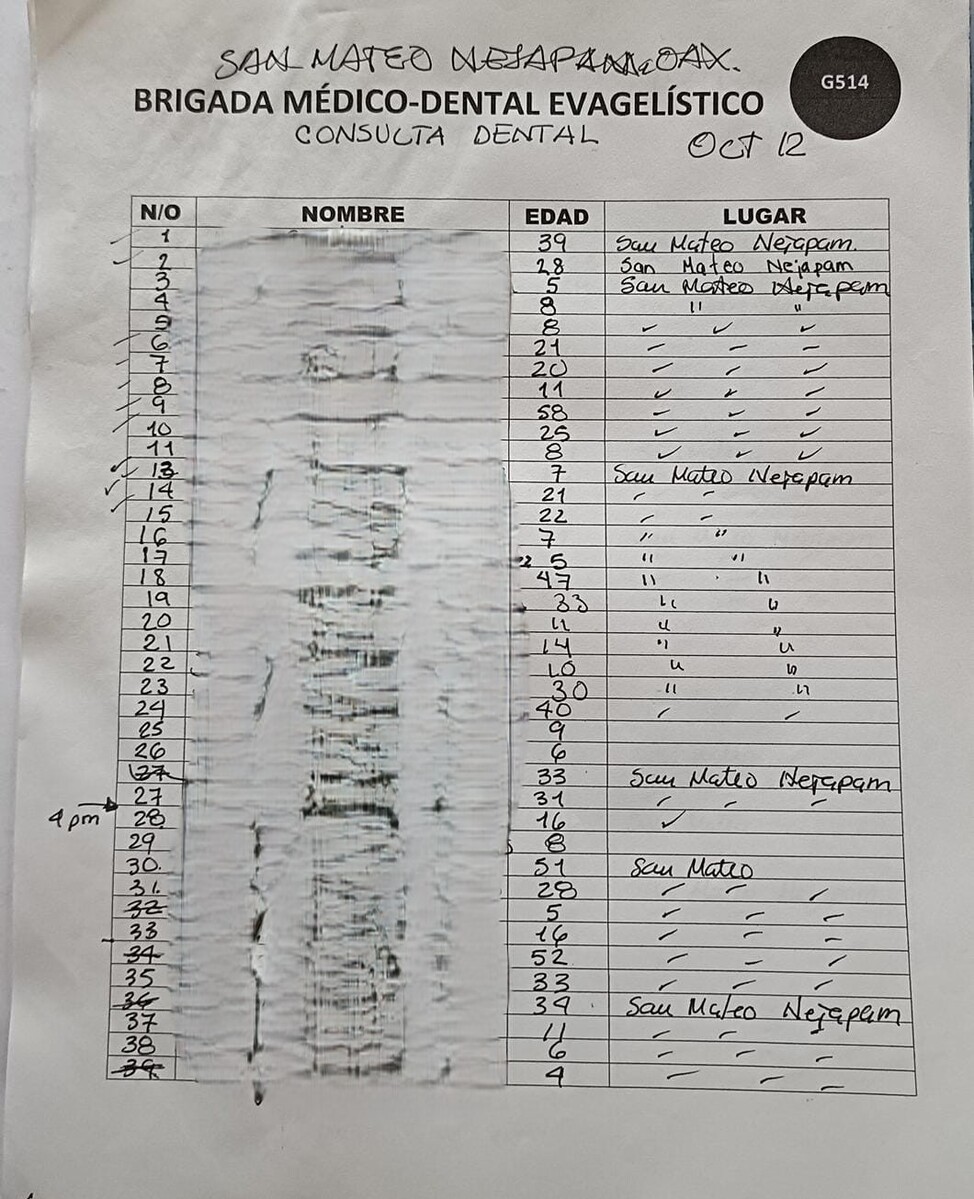 SAN MATEO NEJAPAM OAX.
G514
BRIGADA MÉDICO-DENTAL EVAGELÍSTICO
CONSULTA DENTAL
OCT 12
N/O NOMBRE EDAD LUGAR
1 39 San Mateo Nejapam.
2 28 San Mateo Nejapam
3 5 San Mateo Nejapam
4 8 " "
5 8
6 21
7 20
8 11
9 58
10 25
11 8
13 7 San Mateo Nejapam
14 21
15 22
16 7 " "
17 5 " "
18 47 " "
19 33 " "
20 11 " "
21 14 " "
22 10 " "
23 30 " "
24 40
25 9
26 6
27 33 San Mateo Nejapam
27 31
4 pm 28 16
29 8
30. 51 San Mateo
31. 28
32 5
33 16
34 52
35 33
36 34 San Mateo Nejapam
37 11
38 6
39 4